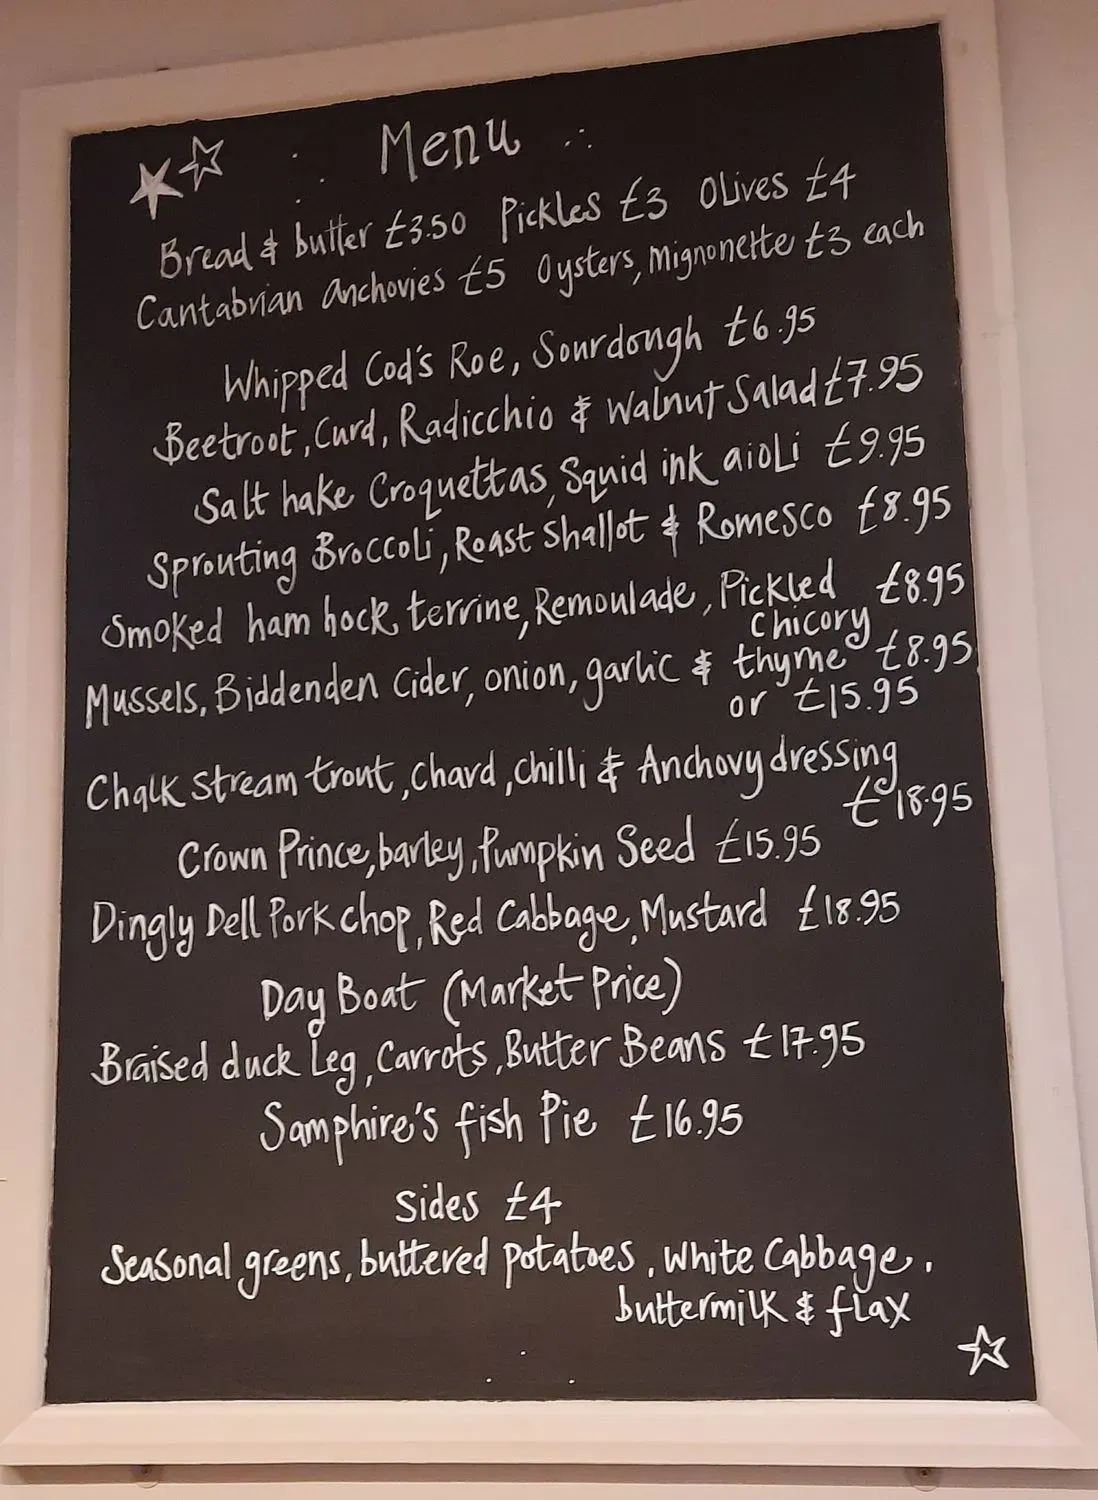 Menu
Bread & butter £3.50 Pickles £3 Olives £4
Cantabrian Anchovies £5 Oysters, Mignonette £3 each
Whipped Cod's Roe, Sourdough £6.95
Beetroot, Curd, Radicchio & Walnut Salad £7.95
Salt hake Croquettas, Squid ink aioli £9.95
Sprouting Broccoli, Roast Shallot & Romesco £8.95
Smoked ham hock terrine, Remoulade, Pickled £8.95
Chicory
Mussels, Biddenden Cider, onion, garlic & thyme £8.95
or £15.95
Chalk Stream trout, chard, chilli & Anchovy dressing
£18.95
Crown Prince, barley, Pumpkin Seed £15.95
Dingly Dell Pork chop, Red Cabbage, Mustard £18.95
Day Boat (Market Price)
Braised duck Leg, Carrots, Butter Beans £17.95
Samphire's fish Pie £16.95
Sides £4
Seasonal greens, buttered potatoes, White Cabbage,
buttermilk & flax